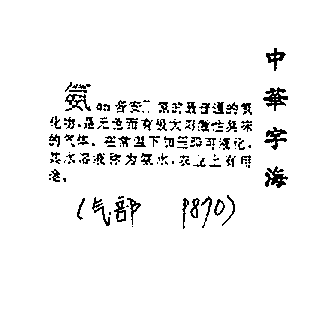 中華字海
氨 ān 音安 氮的最普通的氢
化物,是无色而有极大刺激性臭味
的气体。在常温下加压即可液化,
其水溶液称为氨水,农业上有用
途。
(气部 9870)